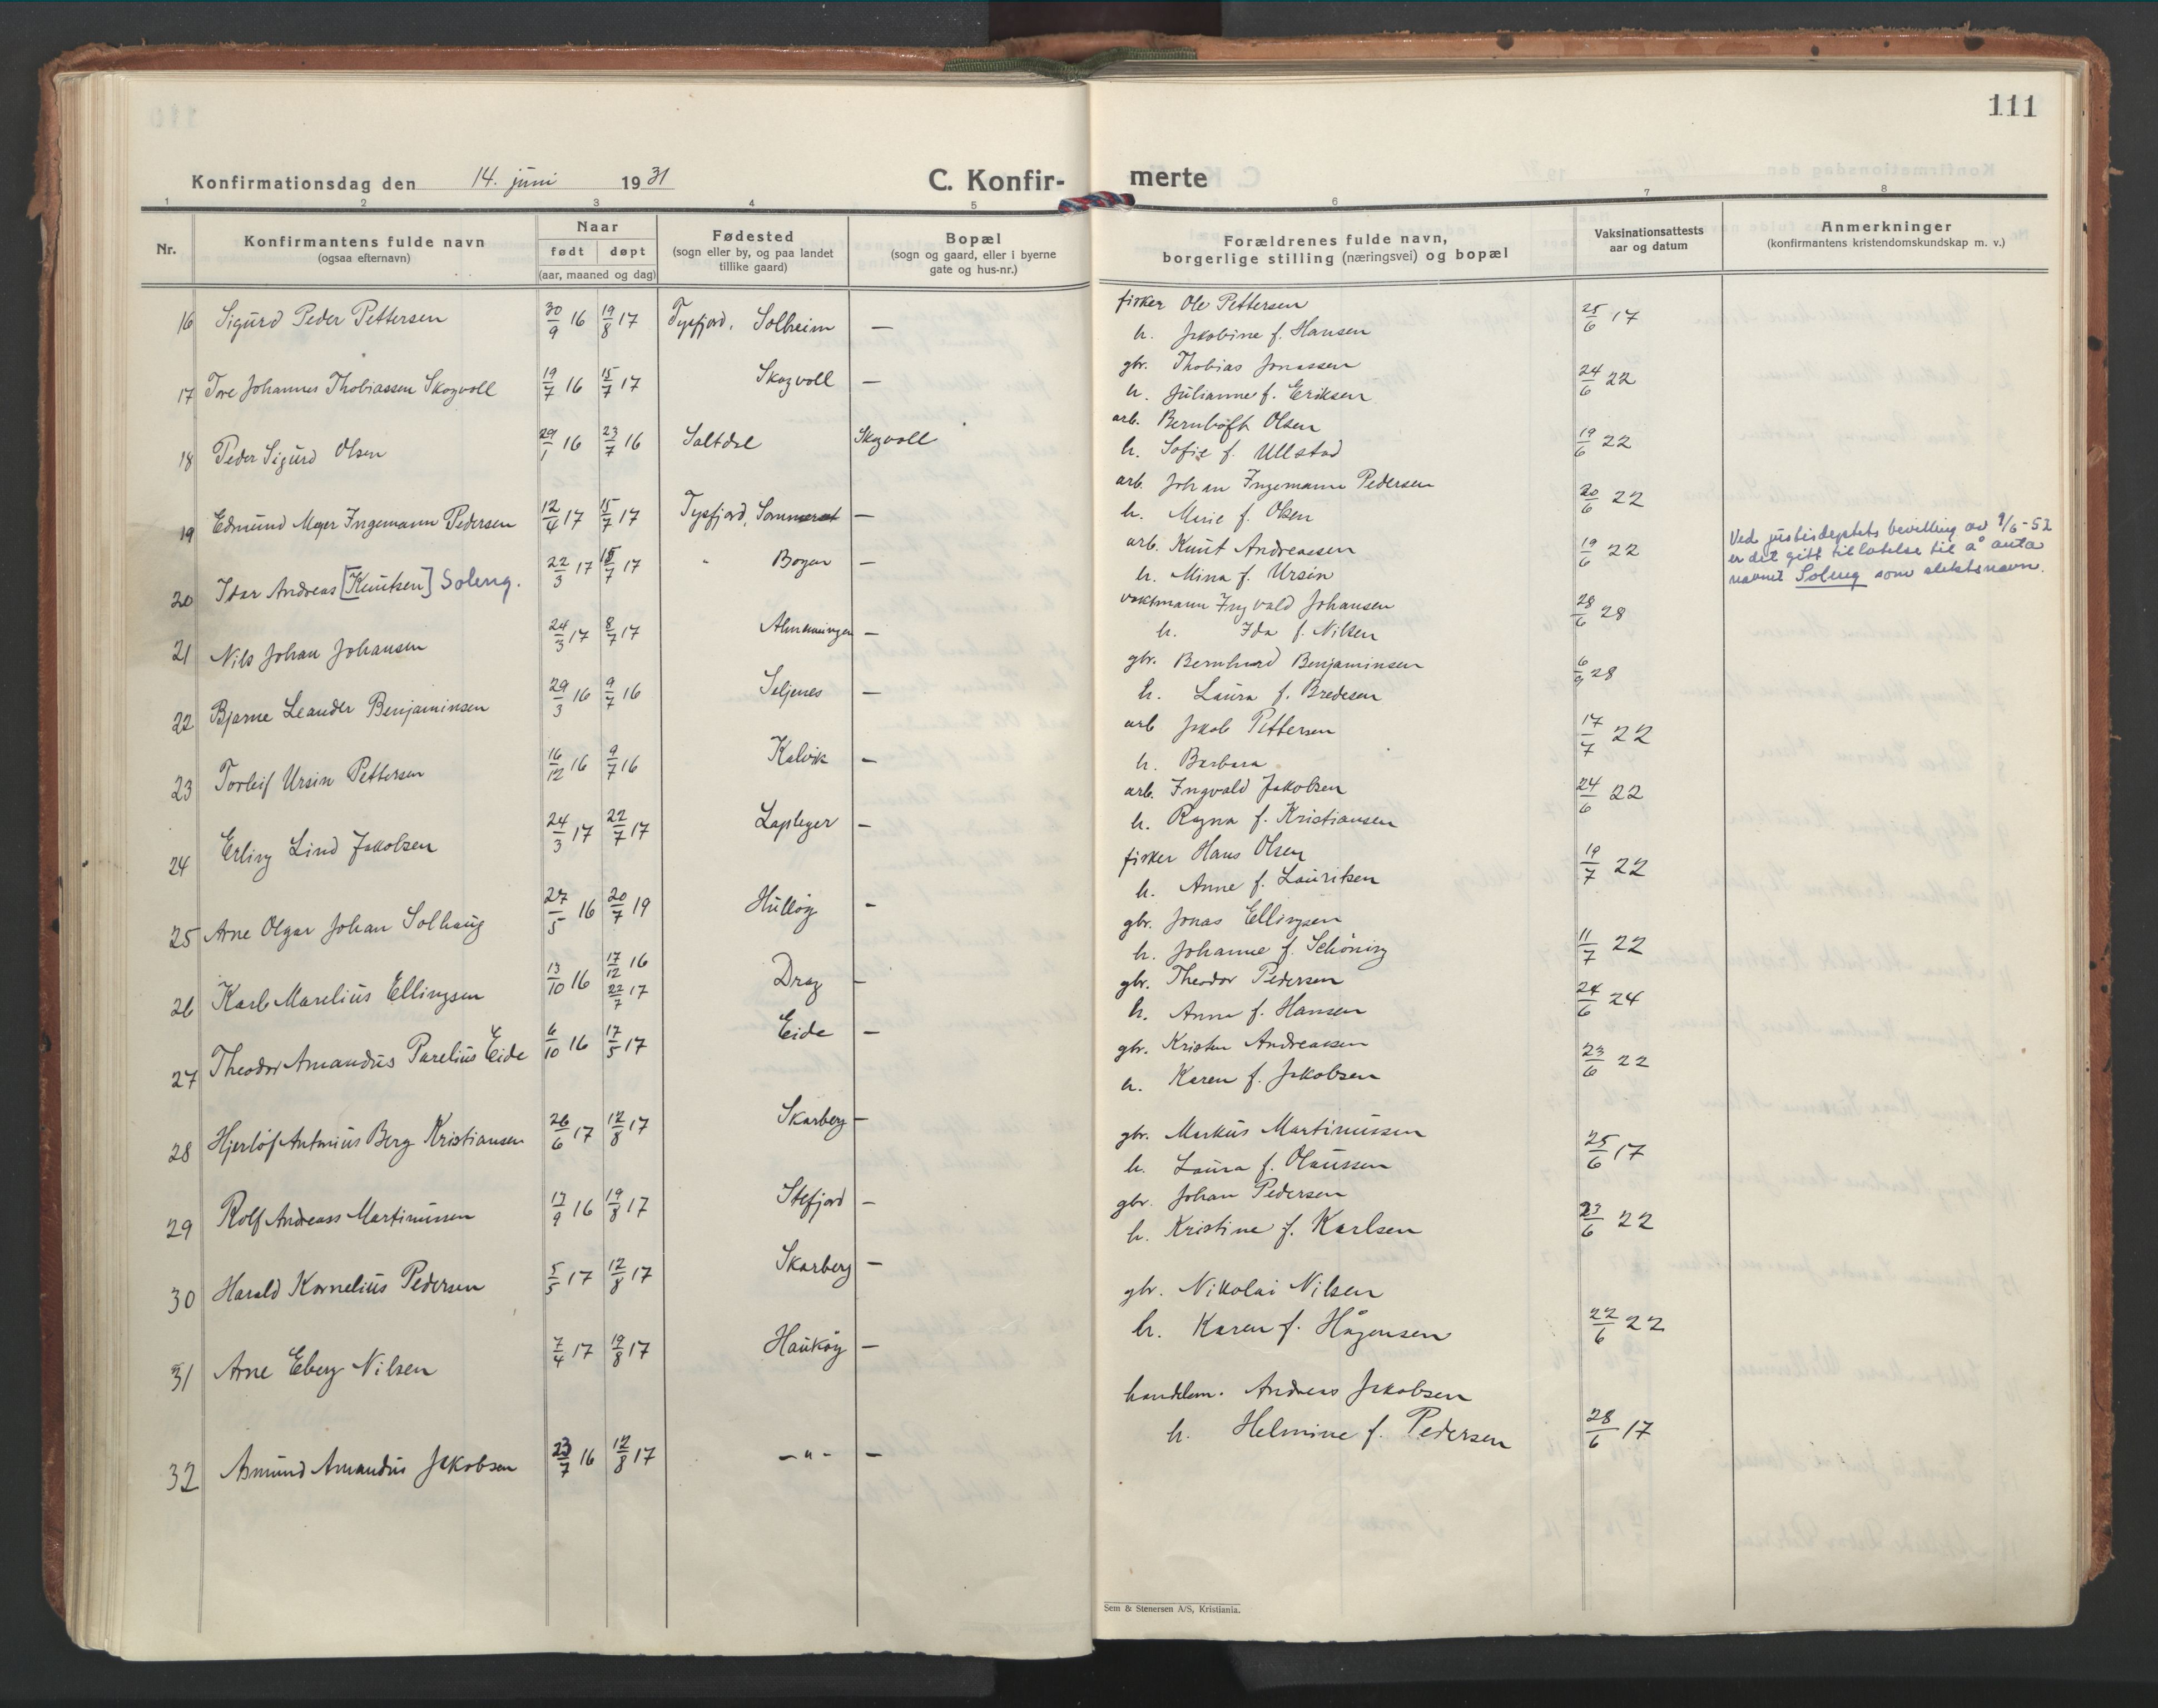 111
Konfirmationsdag den 14. juni 1931 C. Konfirmerte
1 2 3 4 5 6 7 8
Nr.
Konfirmantens fulde navn
(ogsaa efternavn)
Naar
født døpt
(aar, maaned og dag)
Fødested
(sogn eller by, og paa landet
tillike gaard)
Bopæl
(sogn og gaard, eller i byerne
gate og hus-nr.)
Forældrenes fulde navn,
borgerlige stilling (næringsvei) og bopæl
Vaksinationsattests
aar og datum
Anmerkninger
(konfirmantens kristendomskundskap m. v.)
16 Sigurd Peder Pettersen 30/9 16 19/8 17 Tysfjord, Solheim — fisker Ole Pettersen 25/6 17
h. Jakobine f. Hansen
17 Tore Johannes Thobiassen Skogvoll 19/7 16 15/7 17 Skogvoll — gbr. Thobias Jonassen 24/6 22
h. Julianne f. Eriksen
18 Peder Sigurd Olsen 29/1 16 23/7 16 Saltdal Skogvoll arb. Bernhöft Olsen 19/6 22
h. Sofie f. Ullstad
19 Edmund Meyer Ingemann Pedersen 12/4 17 15/7 17 Tysfjord, Sommerset — arb. Johan Ingemann Pedersen 20/6 22
h. Marie f. Olsen
20 Ivar Andreas [Knutsen] Soleng. 22/3 17 15/7 17 " Bogen — arb. Knut Andreassen 19/6 22
h. Mina f. Ursin
Ved justisdeptets bevilling av 9/6-52
er det gitt tillatelse til å anta
navnet Soleng som slektsnavn.
21 Nils Johan Johansen 24/3 17 8/7 17 Almenningen — vaktmann Ingvald Johansen 28/6 28
h. Ida f. Nilsen
22 Bjarne Leander Benjaminsen 29/3 16 9/7 16 Seljenes — gbr. Bernhard Benjaminsen 6/9 28
h. Laura f. Bredesen
23 Torleif Ursin Pettersen 16/12 16 9/7 16 Kalvik — arb Jakob Pettersen 17/7 22
h. Barbara
24 Erling Lind Jakobsen 24/3 17 22/7 17 Lapleger — arb. Ingvald Jakobsen 24/6 22
h. Ragna f. Kristiansen
25 Arne Olgar Johan Solhaug 27/5 16 20/7 19 Hulløy — fisker Hans Olsen 19/7 22
h. Anne f. Lauritsen
26 Karl Marelius Ellingsen 13/10 16 17/12 16 22/7 17 Drag — gbr. Jonas Ellingsen 11/7 22
h. Johanne f. Schöning
27 Theodor Amandus Parelius Eide 6/10 16 17/5 17 Eide — gbr. Theodor Pedersen 24/6 24
h. Anna f. Hansen
28 Hjerløf Antonius Berg Kristiansen 26/6 17 12/8 17 Skarberg — gbr. Kristen Andreassen 23/6 22
h. Karen f. Jakobsen
29 Rolf Andreass Martinussen 17/9 16 19/8 17 Stefjord — gbr. Markus Martinussen 25/6 17
h. Laura f. Olaussen
30 Harald Kornelius Pedersen 5/5 17 12/8 17 Skarberg — gbr. Johan Pedersen 23/6 22
h. Kristine f. Karlsen
31 Arne Eberg Nilsen 7/4 17 19/8 17 Haukøy — gbr. Nikolai Nilsen 22/6 22
h. Karen f. Hågensen
32 Asmund Amandus Jakobsen 23/7 16 12/8 17 —"— — handelsm. Andreas Jakobsen 28/6 17
h. Helmine f. Pedersen
Sem & Stenersen A/S, Kristiania.